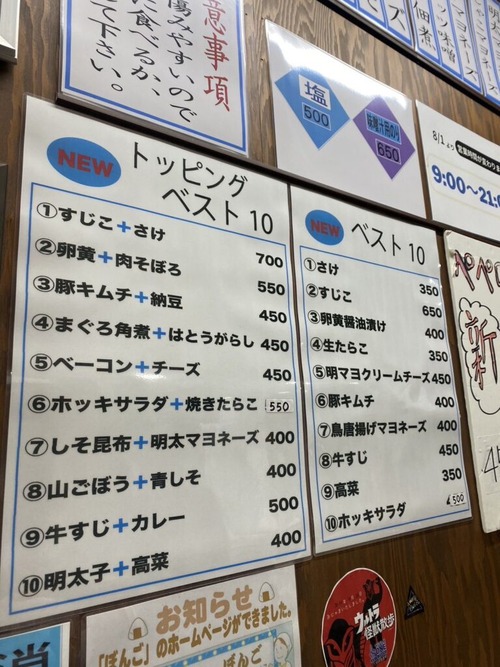 意事項
傷みやすいので
に食べるか、
して下さい。
塩
500
味噌汁用のり
650
8/1より営業時間が変わりま
9:00〜21:0
NEW
トッピング
ベスト 10
①すじこ+さけ 700
②卵黄+肉そぼろ 550
③豚キムチ+納豆 450
④まぐろ角煮+はとうがらし 450
⑤ベーコン+チーズ 450
⑥ホッキサラダ+焼きたらこ 550
⑦しそ昆布+明太マヨネーズ 400
⑧山ごぼう+青しそ 400
⑨牛すじ+カレー 500
⑩明太子+高菜 400
NEW
ベスト 10
①さけ 350
②すじこ 650
③卵黄醤油漬け 400
④生たらこ 350
⑤明マヨクリームチーズ 450
⑥豚キムチ 400
⑦鳥唐揚げマヨネーズ 400
⑧牛すじ 450
⑨高菜 350
⑩ホッキサラダ 500
ペペロ
新
お知らせ
「ぼんご」のホームページができました。
ぼんご
ウルトラ
怪獣散歩